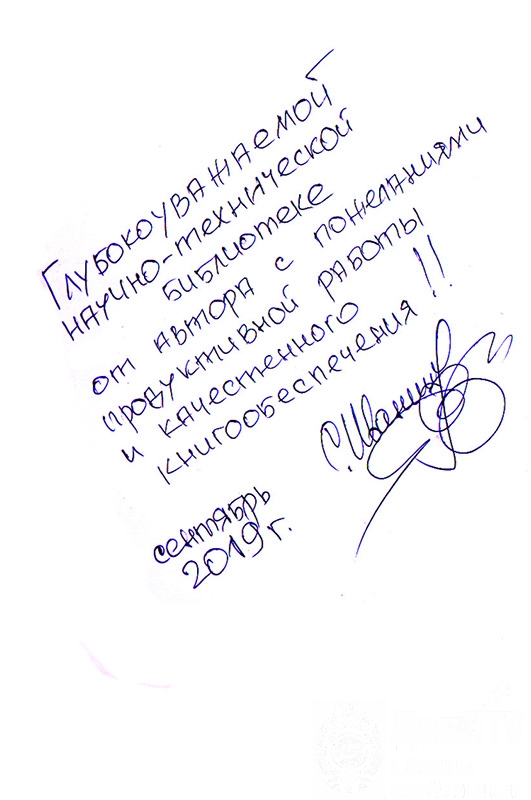 Глубокоуважаемой
научно-технической
библиотеке
от автора с пожеланиями
продуктивной работы
и качественного
книгообеспечения!!
сентябрь
2019 г.